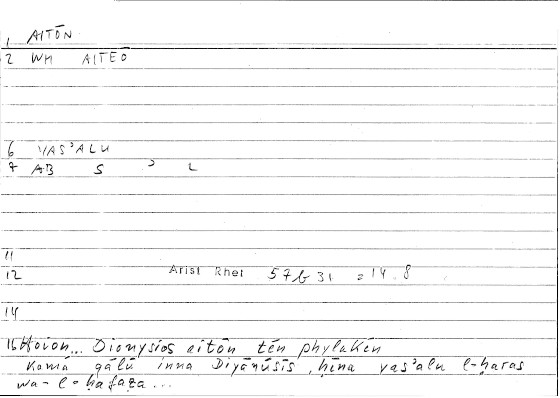 1 AITŌN
2 WH AITEŌ
6 YAS'ALU
7 AB S ' L
11
12 Arist Rhet 57b31 = 14.8
14
16 Hoion... Dionysios aitōn tēn phylakēn
Kamā qālū inna Diyānūsīs, ḥīna yas'alu l-ḥaras
wa-l-ḥafaẓa...